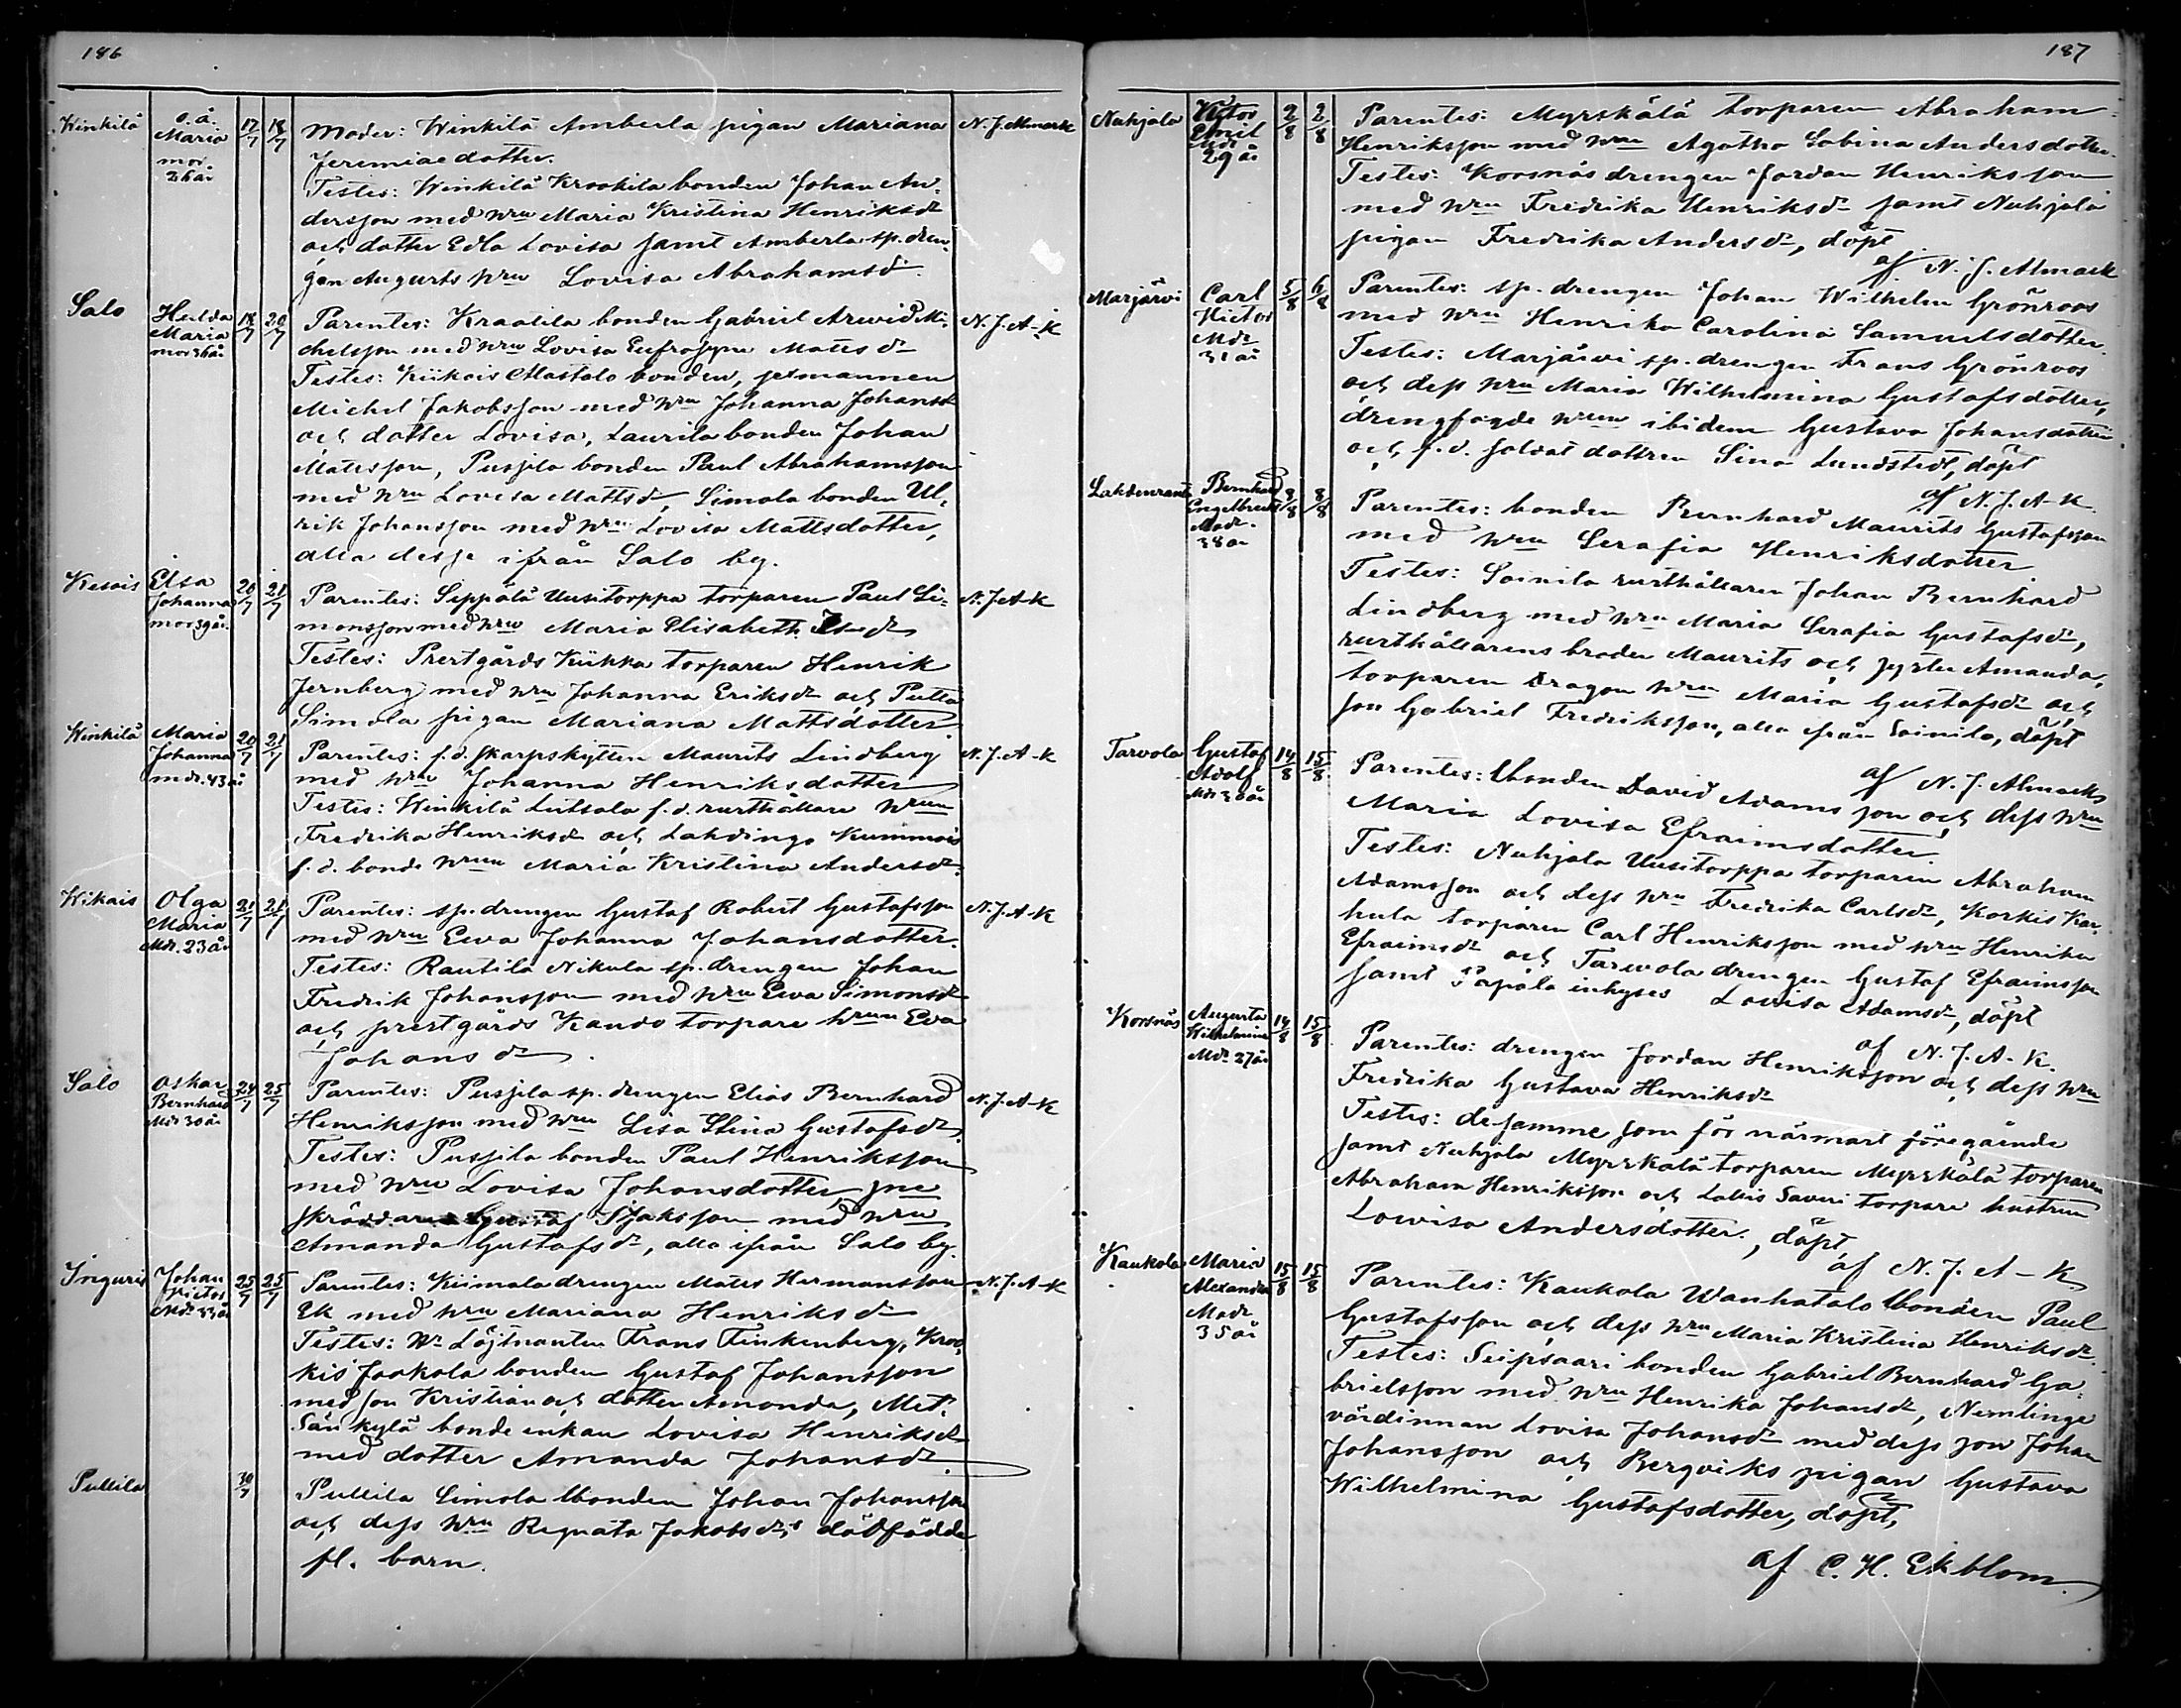 186
Winkilä
o.ä. Maria mor. 26 år
17/7 18/7
Moder: Winkilä Amberla pigan Mariana
N. J. Almark
Jeremiaedotter.
Testes: Winkilä Krookila bonden Johan An-
dersson med hru Maria Kristina Henriksdr
och dotter Edla Lovisa samt Amberla sp. dren-
gen Augusts hru Lovisa Abrahamsdr.
Salo
Hulda Maria mor 36 år
18/7 20/7
Parentes: Kraatila bonden Gabriel Arwid Mi-
N. J. A-k
chelsson med hru Lovisa Eufrosyne Matsdr
Testes: Kiikois Mastalo bonden, sexmannen
Michel Jakobsson med hru Johanna Johansdr
och dotter Lovisa, Laurila bonden Johan
Matsson, Pussila bonden Paul Abrahamsson
med hru Lovisa Mattsdr, Simola bonden Ul-
rik Johansson med hru Lovisa Mattsdotter,
alla desse ifrån Salo by.
Kesois
Elsa Johanna mor 39 år.
20/7 21/7
Parentes: Seppälä Uusitorppa torparen Paul Si-
N. J. A-k
monsson med hru Maria Elisabeth dr
Testes: Prestgårds Kiikka torparen Henrik
Jernberg med hru Johanna Eriksdr och
Simola pigan Mariana Mattsdotter.
Winkilä
Maria Johanna mdr. 43 år
20/7 21/7
Parentes: f.d. skarpskytten Maurits Lindberg
N. J. A-k
med hru Johanna Henriksdotter
Testes: Winkilä Lutsala f.d. rusthållare hrun
Fredrika Henriksdr och Lahdingo Kummois
f.d. bonde hrun Maria Kristina Andersdr.
Wikais
Olga Maria Mdr. 23 år
21/7 21/7
Parentes: sp. drengen Gustaf Robert Gustafsson
N. J. A-k
med hru Ewa Johanna Johansdotter.
Testes: Rautila Nikula sp. drengen Johan
Fredrik Johansson med hru Ewa Simonsdr
och prestgårds Kando torpare hrun Eva
Johansdr.
Salo
Oskar Bernhard Mdr 30 år
24/7 25/7
Parentes: Pussila sp. drengen Elias Bernhard
N. J. A-k
Henriksson med hru Lisa Stina Gustafsdr.
Testes: Pussila bonden Paul Henriksson
med hru Lovisa Johansdotter, sne
skräddaren Gustaf Isaksson med hru
Amanda Gustafsdr, alla ifrån Salo by.
Inguris
Johan Victor Mdr 33 år
25/7 25/7
Parentes: Kiimala drengen Mats Hermansson
N. J. A-k
Ek med hru Mariana Henriksdr
Testes: Hr Löjtnanten Frans Finkenberg, Kroo-
kis Jaakola bonden Gustaf Johansson
med son Kristian och dotter Amanda, Met-
sänkylä bonde enkan Lovisa Henriksdr
med dotter Amanda Johansdr.
Pullila
30/7
Pullila Simola bonden Johan Johansson
och dess hru Regnata Jakobsdr:s dödfödde
fl. barn.
187
Nuhjala
Victor Emil Mdr 29 år
2/8 2/8
Parentes: Myrskälä torparen Abraham
Henriksson med hru Agatha Sabina Andersdotter.
Testes: Korsnäs drengen Jordan Henriksson
med hru Fredrika Henriksdr samt Nuhjala
pigan Fredrika Andersdr, döpt
af N. J. Almark
Marjärvi
Carl Victor Mdr 31 år
5/8 6/8
Parentes: sp. drengen Johan Wilhelm Grönroos
med hru Henrika Carolina Samuelsdotter.
Testes: Marjärvi sp. drengen Frans Grönroos
och dess hru Maria Wilhelmina Gustafsdotter,
drengfogde hrun ibidem Gustava Johansdotter
och f.d. soldat dottren Sina Lundstedt, döpt
af N. J. A-k.
Lahdenranta
Bernhard Engelbrecht Modr. 38 år
8/8 8/8
Parentes: bonden Bernhard Maurits Gustafsson
med hru Serafia Henriksdotter
Testes: Soinila rusthållaren Johan Bernhard
Lindberg med hru Maria Serafia Gustafsdr,
rusthållarens broder Maurits och syster Amanda,
torparen Dragon hru Maria Gustafsdr och
son Gabriel Fredriksson, alla ifrån Soinila, döpt
af N. J. Almark
Tarvola
Gustaf Adolf
14/8 15/8
Parentes: bonden David Adamsson och dess hru
Maria Lovisa Efraimsdotter.
Testes: Nuhjala Uusitorppa torparen Abraham
Adamsson och dess hru Fredrika Carlsdr, Korkis Kar-
hula torparen Carl Henriksson med hru Henrika
Efraimsdr och Tarvola drengen Gustaf Efraimsson
samt Papála inhyses Lovisa Adamsdr, döpt
af N. J. A-k.
Korsnäs
Augusta Wilhelmina Mdr 27 år
14/8 15/8
Parentes: drengen Jordan Henriksson och dess hru
Fredrika Gustava Henriksdr
Testes: desamme som för närmast föregående
samt Nuhjala Myrskälä torparen Myrskälä torparen
Abraham Henriksson och Lallis Saveri torpare hustrun
Lowisa Andersdotter., döpt
af N. J. A-k
Kaukola
Maria Alexandra Modr 35 år
15/8 15/8
Parentes: Kaukola Wanhatalo bonden Paul
Gustafsson och dess hru Maria Kristina Henriksdr.
Testes: Seipsaari bonden Gabriel Bernhard Ga-
brielsson med hru Henrika Johansdr, Nemlinge
värdinnan Lovisa Johansdr med dess son Johan
Johansson och Bergviks pigan Gustava
Wilhelmina Gustafsdotter, döpt,
af C. H. Ekblom